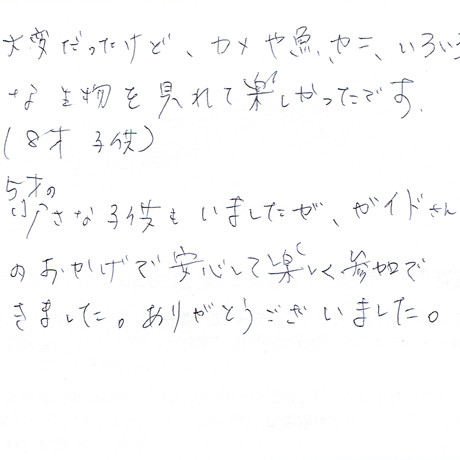 大変だったけど、カメや魚、カニ、いろいろ
な生物を見れて楽しかったです。
(8才 子供)
5才の
小さな子供もいましたが、ガイドさん
のおかげで安心して楽しく参加で
きました。ありがとうございました。